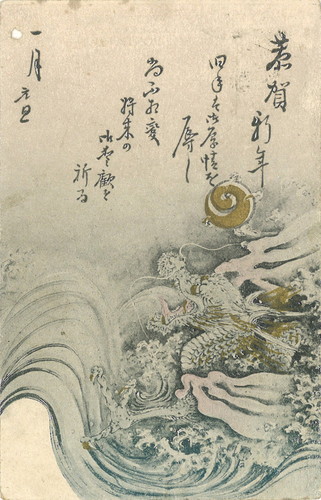 恭賀新年
旧年は御厚情を
辱し
尚不相変
将来の
御愛顧を
祈る
一月元旦